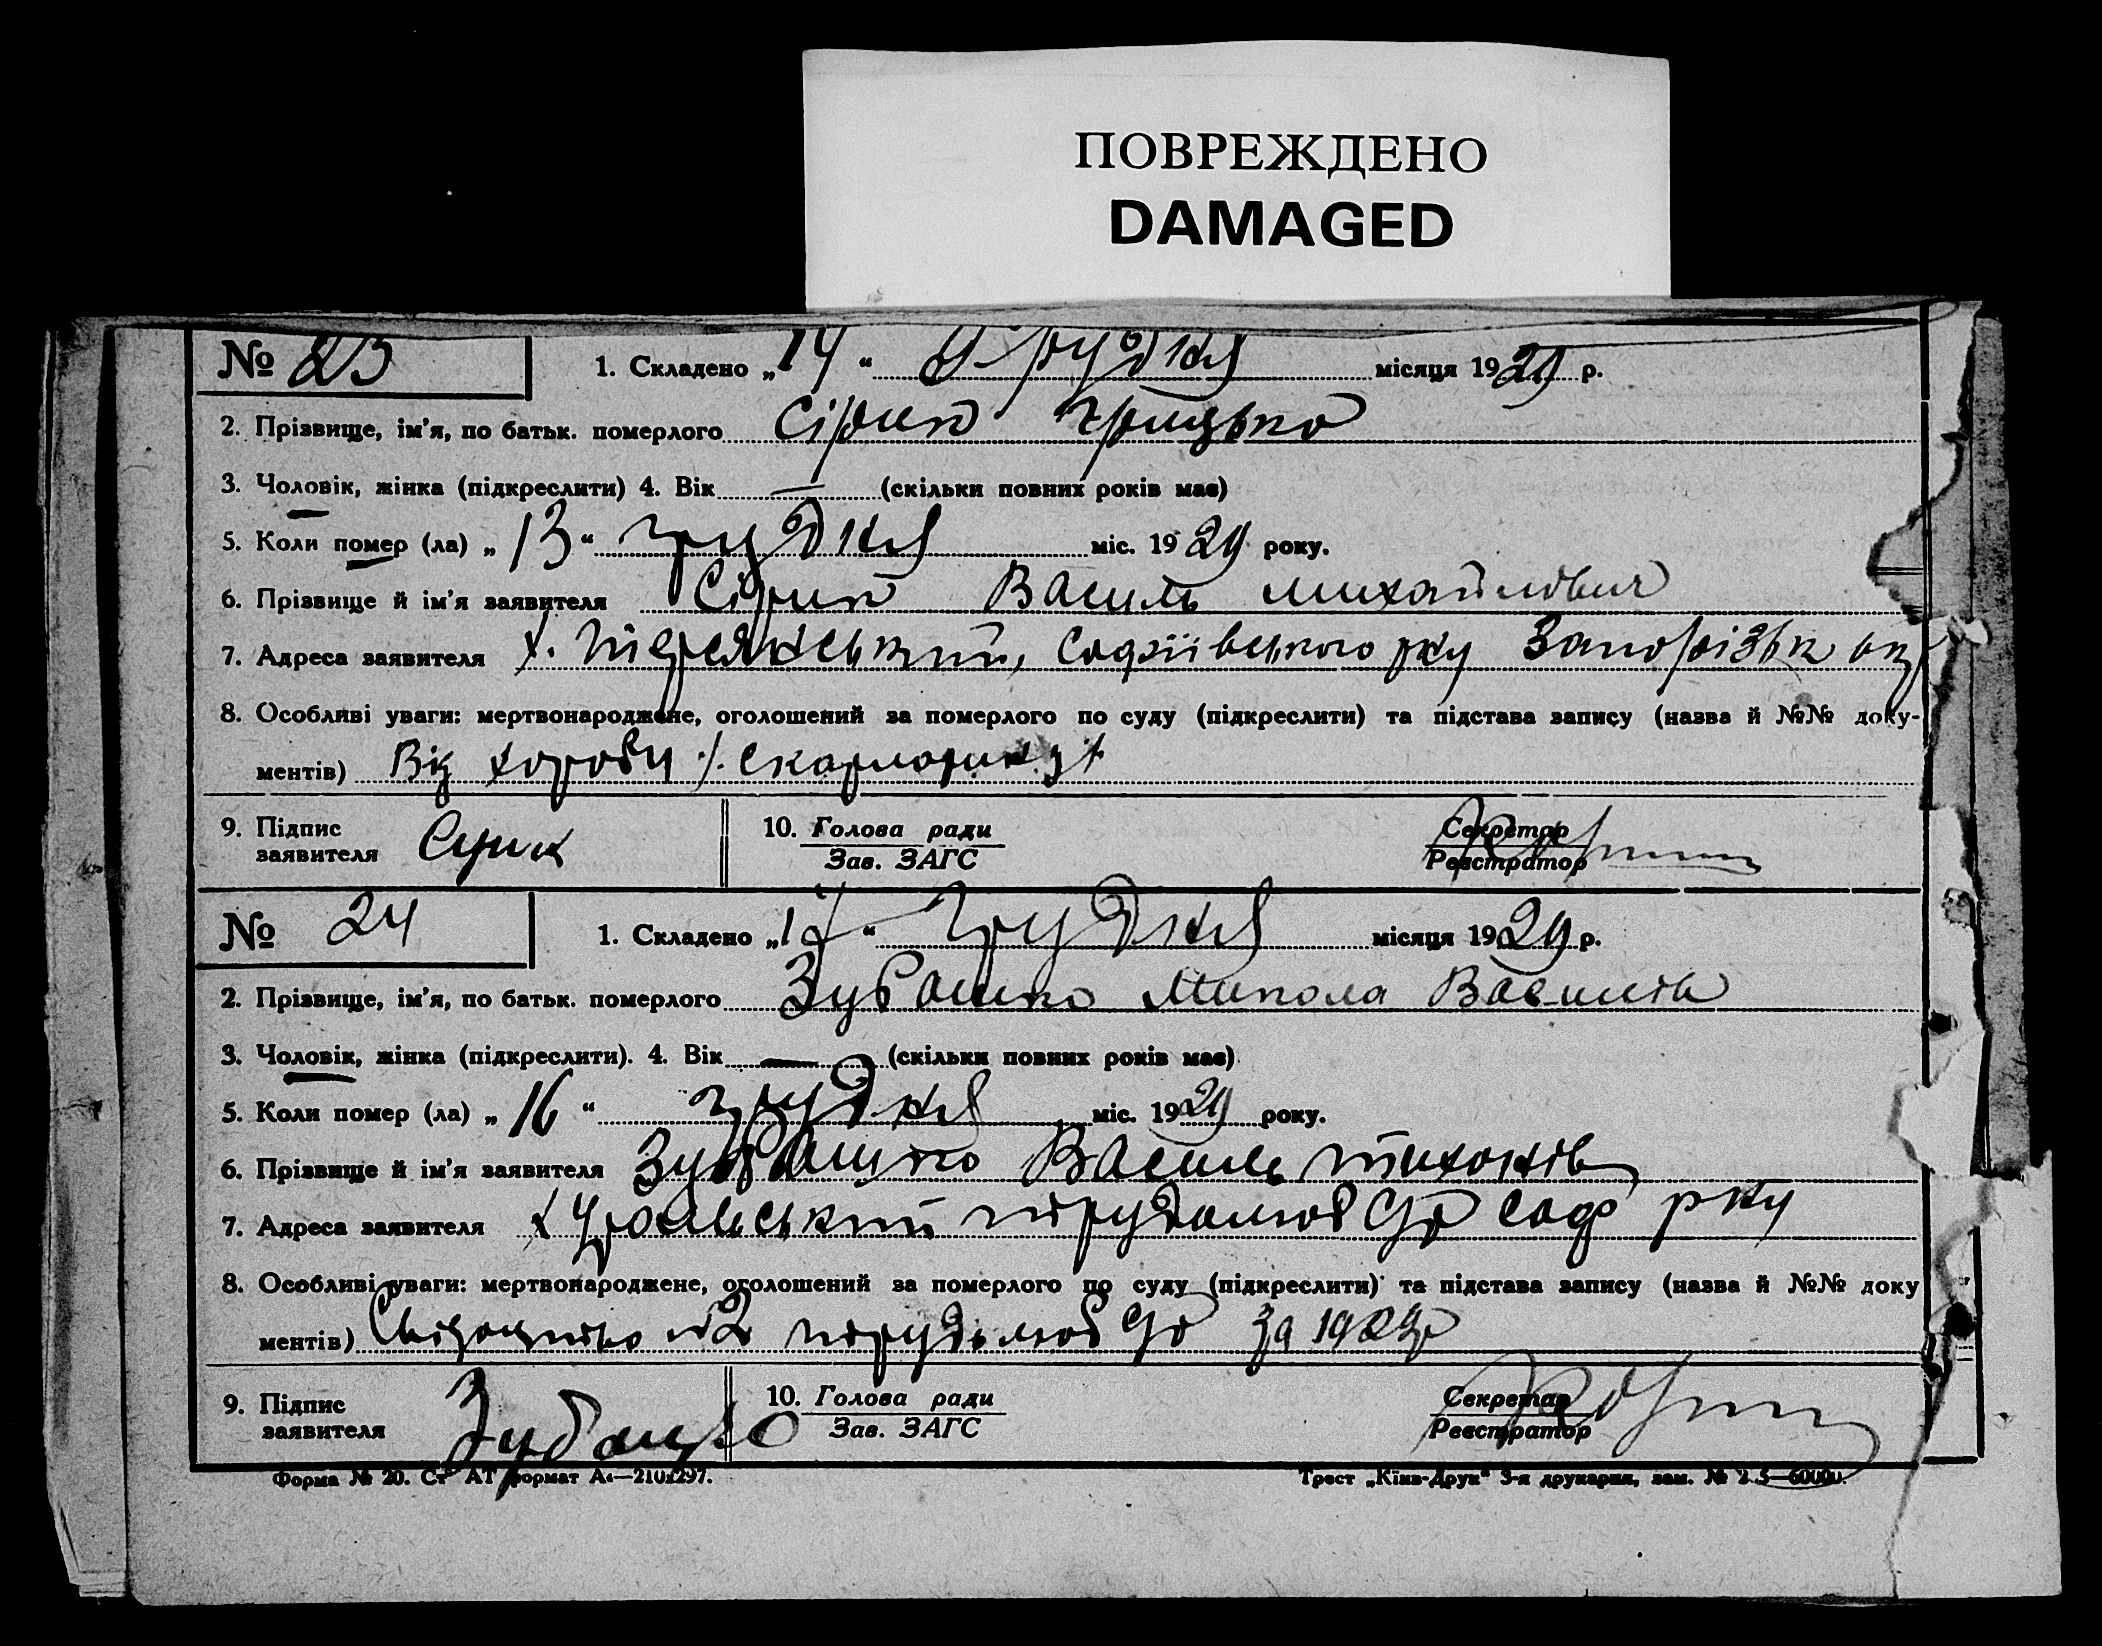 ПОВРЕЖДЕНО
DAMAGED
№ 23 1. Складено „14“ Грудня місяця 1929 р.
2. Прізвище, ім’я, по батьк. померлого Сірик Грицько
3. Чоловік, жінка (підкреслити) 4. Вік — (скільки повних років мав)
5. Коли помер (ла) „13“ грудня міс. 1929 року.
6. Прізвище й ім’я заявителя Сірик Василь Михайлович
7. Адреса заявителя х. Софіївського рну Запорізьк окр
8. Особливі уваги: мертвонароджене, оголошений за померлого по суду (підкреслити) та підстава запису (назва й №№ доку-
ментів) Від хороби
9. Підпис заявителя Сирик 10. Голова ради Секретар
Зав. ЗАГС Реєстратор
№ 24 1. Складено „17“ Грудня місяця 1929 р.
2. Прізвище, ім’я, по батьк. померлого Зубашко Микола Васильів
3. Чоловік, жінка (підкреслити). 4. Вік — (скільки повних років мав)
5. Коли помер (ла) „16“ грудня міс. 1929 року.
6. Прізвище й ім’я заявителя Зубашко Василь Тихонів
7. Адреса заявителя х Соф рну
8. Особливі уваги: мертвонароджене, оголошений за померлого по суду (підкреслити) та підстава запису (назва й №№ доку
ментів) за 1929р
9. Підпис заявителя Зубашко 10. Голова ради Секретар
Зав. ЗАГС Реєстратор
Форма № 20. Ст АТ формат А4—210х297. Трест „Київ-Друк“ 3-я друкарня, зам. №